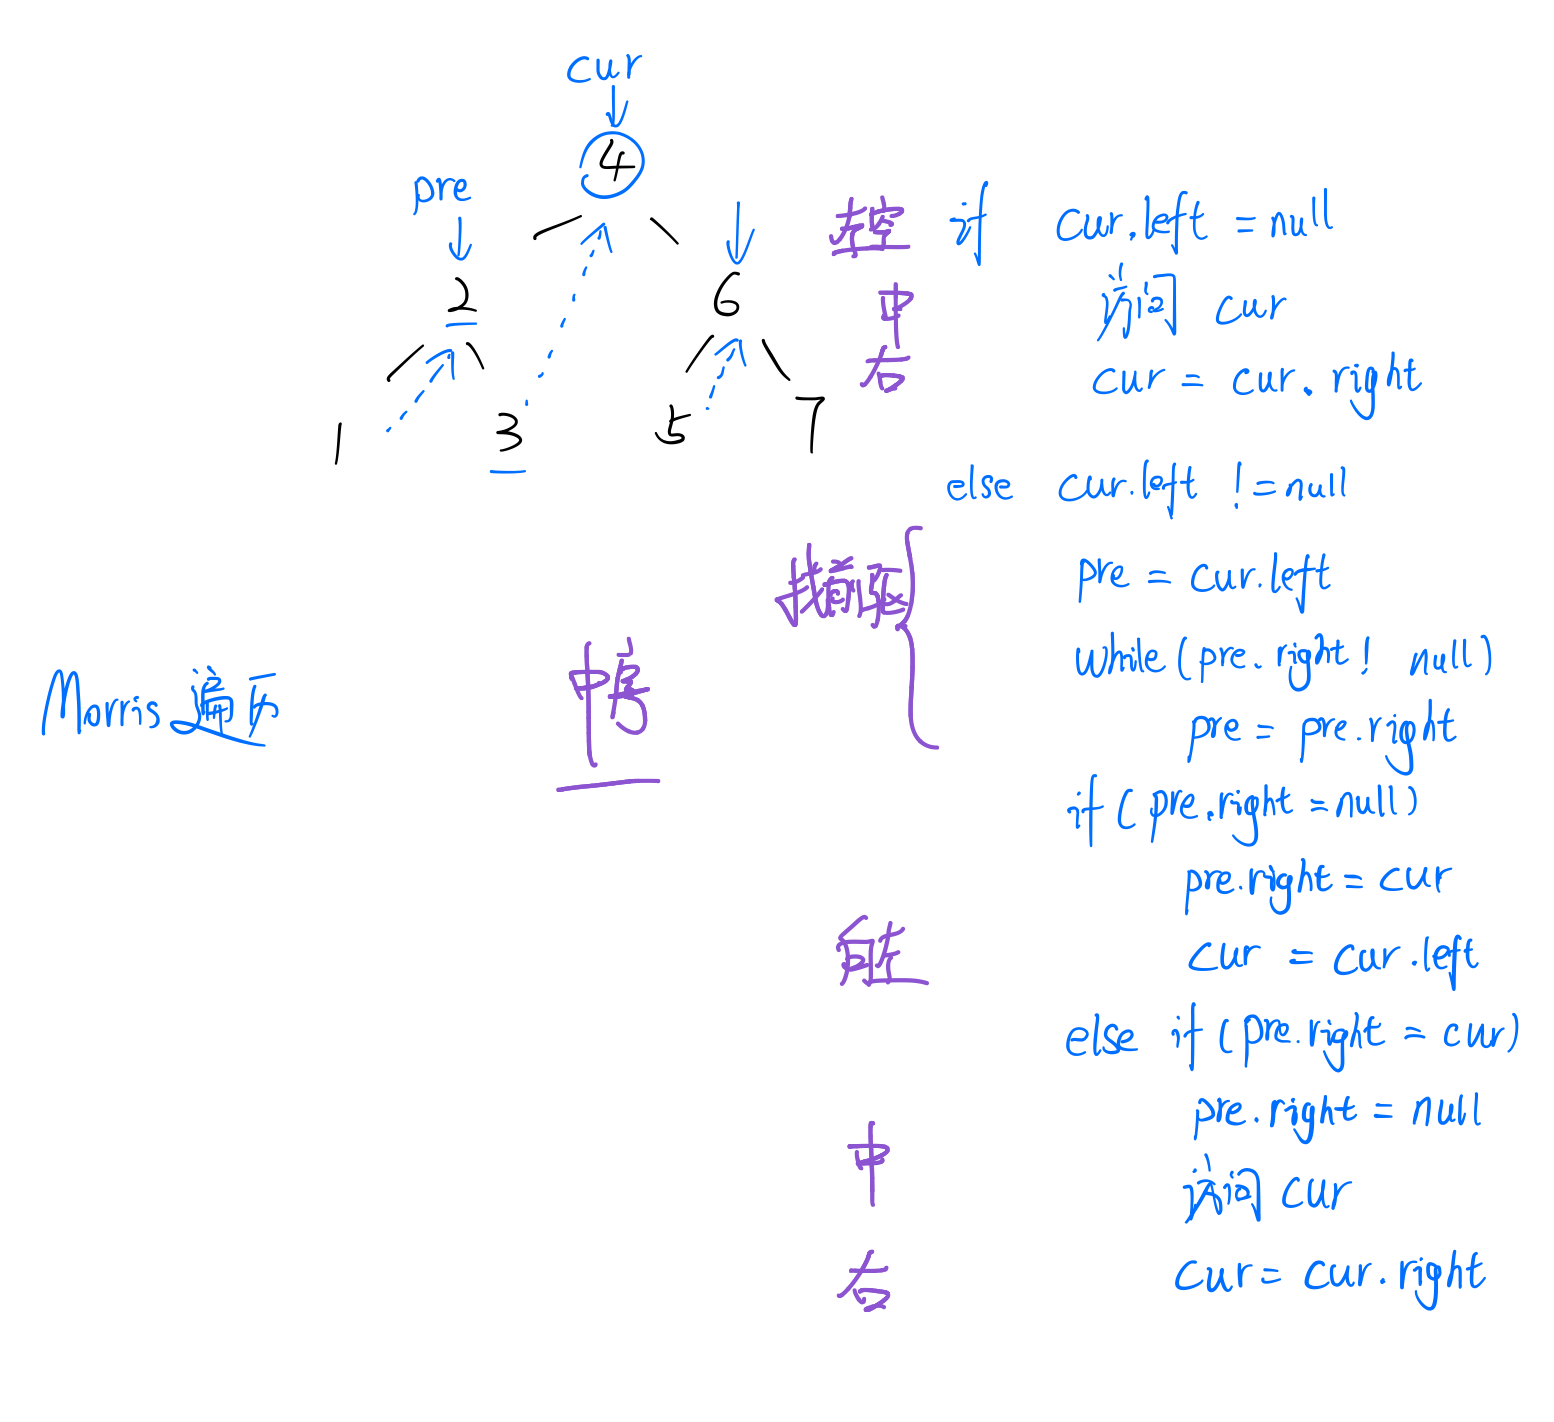 cur
4
pre
2
6
1
3
5
7
Morris 遍历
中序
左空 if cur.left = null
中 访问 cur
右 cur = cur.right
else cur.left != null
找前驱
pre = cur.left
while (pre.right! null)
pre = pre.right
if (pre.right = null)
pre.right = cur
向左 cur = cur.left
else if (pre.right = cur)
pre.right = null
中 访问 cur
右 cur = cur.right